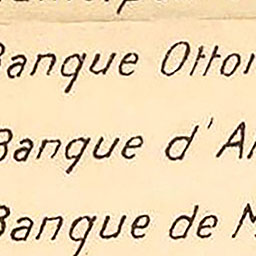 Banque Ottom
Banque d'A
Banque de M